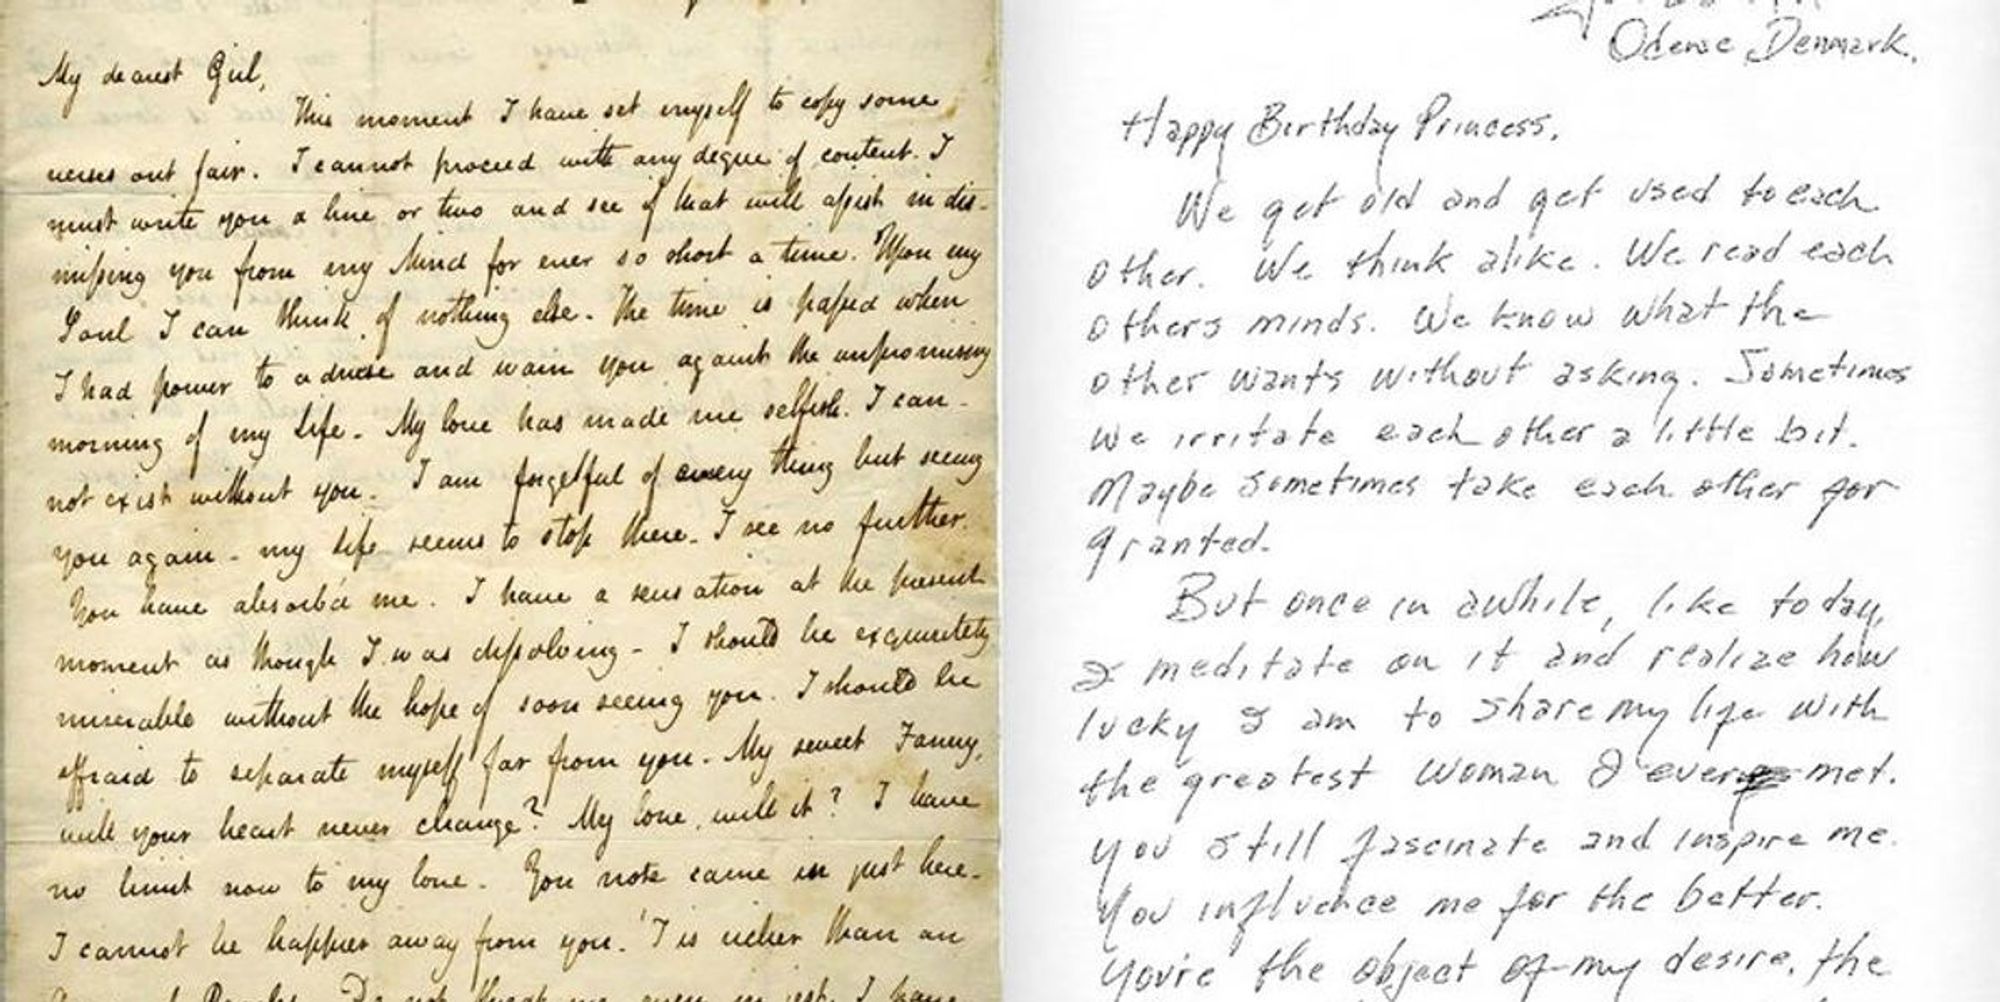 My dearest Girl,
This moment I have set myself to copy some
verses out fair. I cannot proceed with any degree of content. I
must write you a line or two and see if that will assist in dis-
missing you from my Mind for ever so short a time. Upon my
Soul I can think of nothing else - The time is passed when
I had power to advise and warn you against the unpromising
morning of my Life - My love has made me selfish. I can-
not exist without you - I am forgetful of every thing but seeing
you again - my Life seems to stop there - I see no further.
You have absorb'd me. I have a sensation at the present
moment as though I was dissolving - I should be exquisitely
miserable without the hope of soon seeing you. I should be
affraid to separate myself far from you. My sweet Fanny,
will your heart never change? My love, will it? I have
no limit now to my love - You note came in just here -
I cannot be happier away from you. 'T is richer than an
Do not threat me even in jest. I have
Odense Denmark.
Happy Birthday Princess.
We get old and get used to each
other. We think alike. We read each
others minds. We know what the
other wants without asking. Sometimes
we irritate each other a little bit.
Maybe sometimes take each other for
granted.
But once in awhile, like today,
I meditate on it and realize how
lucky I am to share my life with
the greatest woman I ever met.
You still fascinate and inspire me.
You influence me for the better.
You're the object of my desire, the